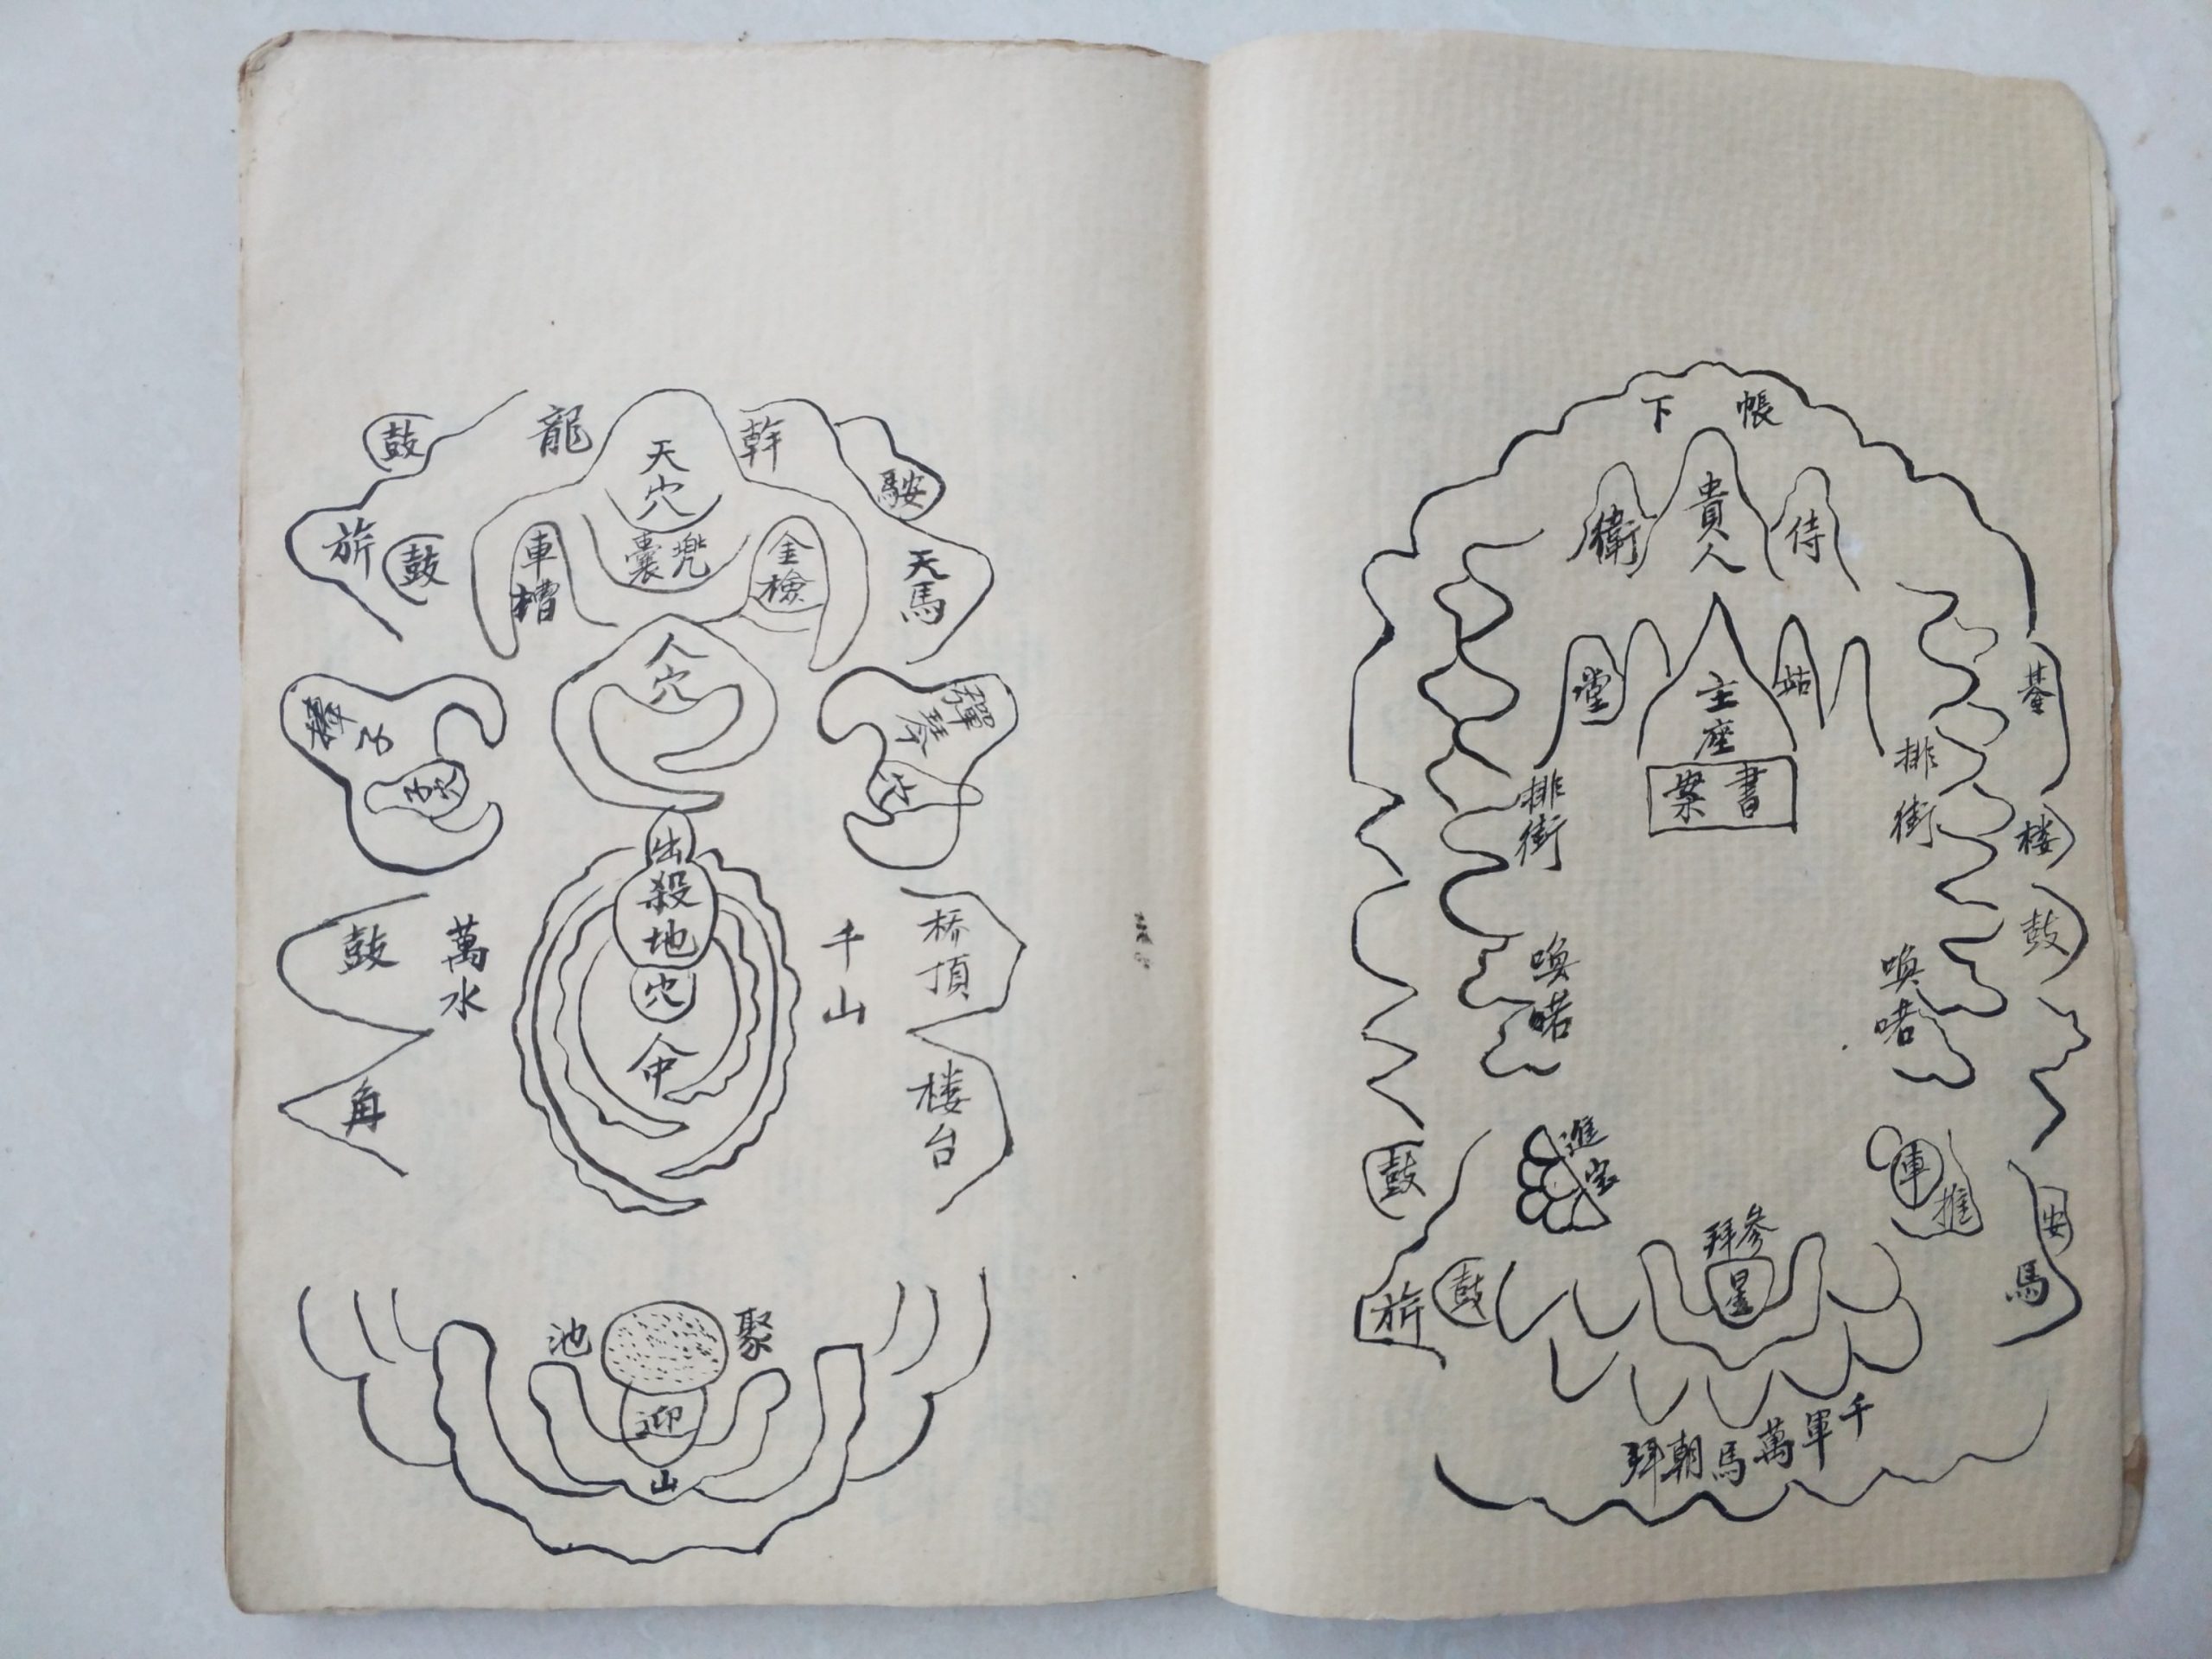 帳下
侍
貴人
衛
主座
站
堂
書案
排衙
排衙
楼
鼓
喚喏
喚喏
進宝
推車
鼓
旂
鼓
馬
參拜
星
千軍萬馬朝拜
幹龍
鼓
天穴
旂
鼓
兜囊
車槽
金檢
天馬
人穴
彈琴
出
殺
地
穴
千山
萬水
橋頂
鼓
楼台
角
聚池
迎
山